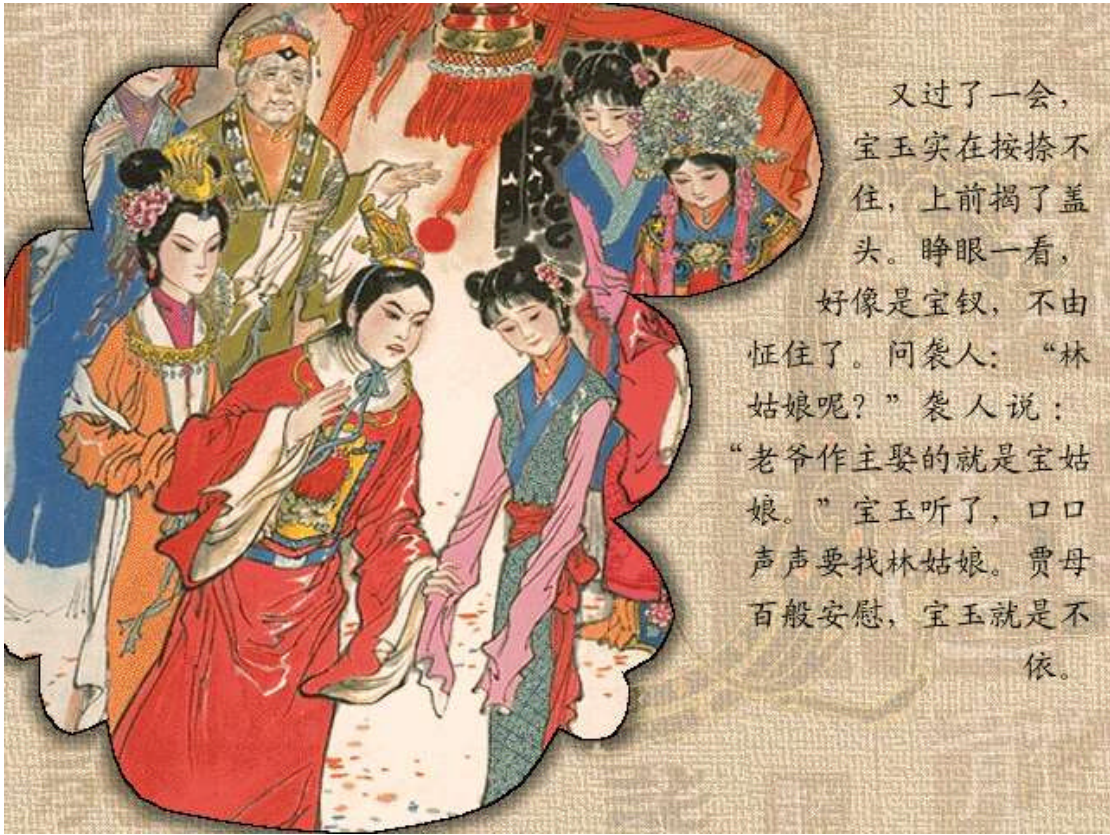 又过了一会，
宝玉实在按捺不
住，上前揭了盖
头。睁眼一看，
好像是宝钗，不由
怔住了。问袭人：“林
姑娘呢？”袭人说：
“老爷作主娶的就是宝姑
娘。”宝玉听了，口口
声声要找林姑娘。贾母
百般安慰，宝玉就是不
依。